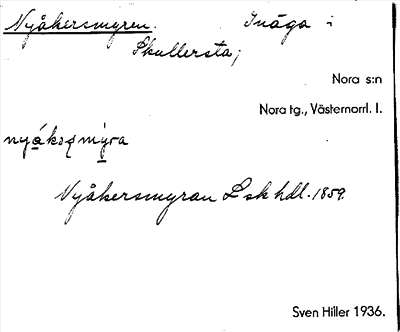 Nyåkersmyren. Inäga i
Skullersta;
Nora s:n
Nora tg., Västernorrl. l.
Nyåkersmyran L sk hdl. 1859.
Sven Hiller 1936.